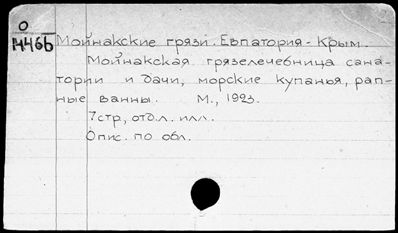 О
М466
Мойнакские грязи. Евпатория - Крым.
Мойнакская грязелечебница сана-
тории и дачи, морские купанья, рап-
ные ванны. М., 1923.
7стр, отд.л. илл.
Опис. по обл.